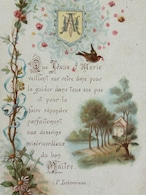 Que Jésus & Marie
veillent sur votre âme pour
la guider dans tous ses pas
et pour la
faire répondre
parfaitement
aux desseins
miséricordieux
du bon
Maître.